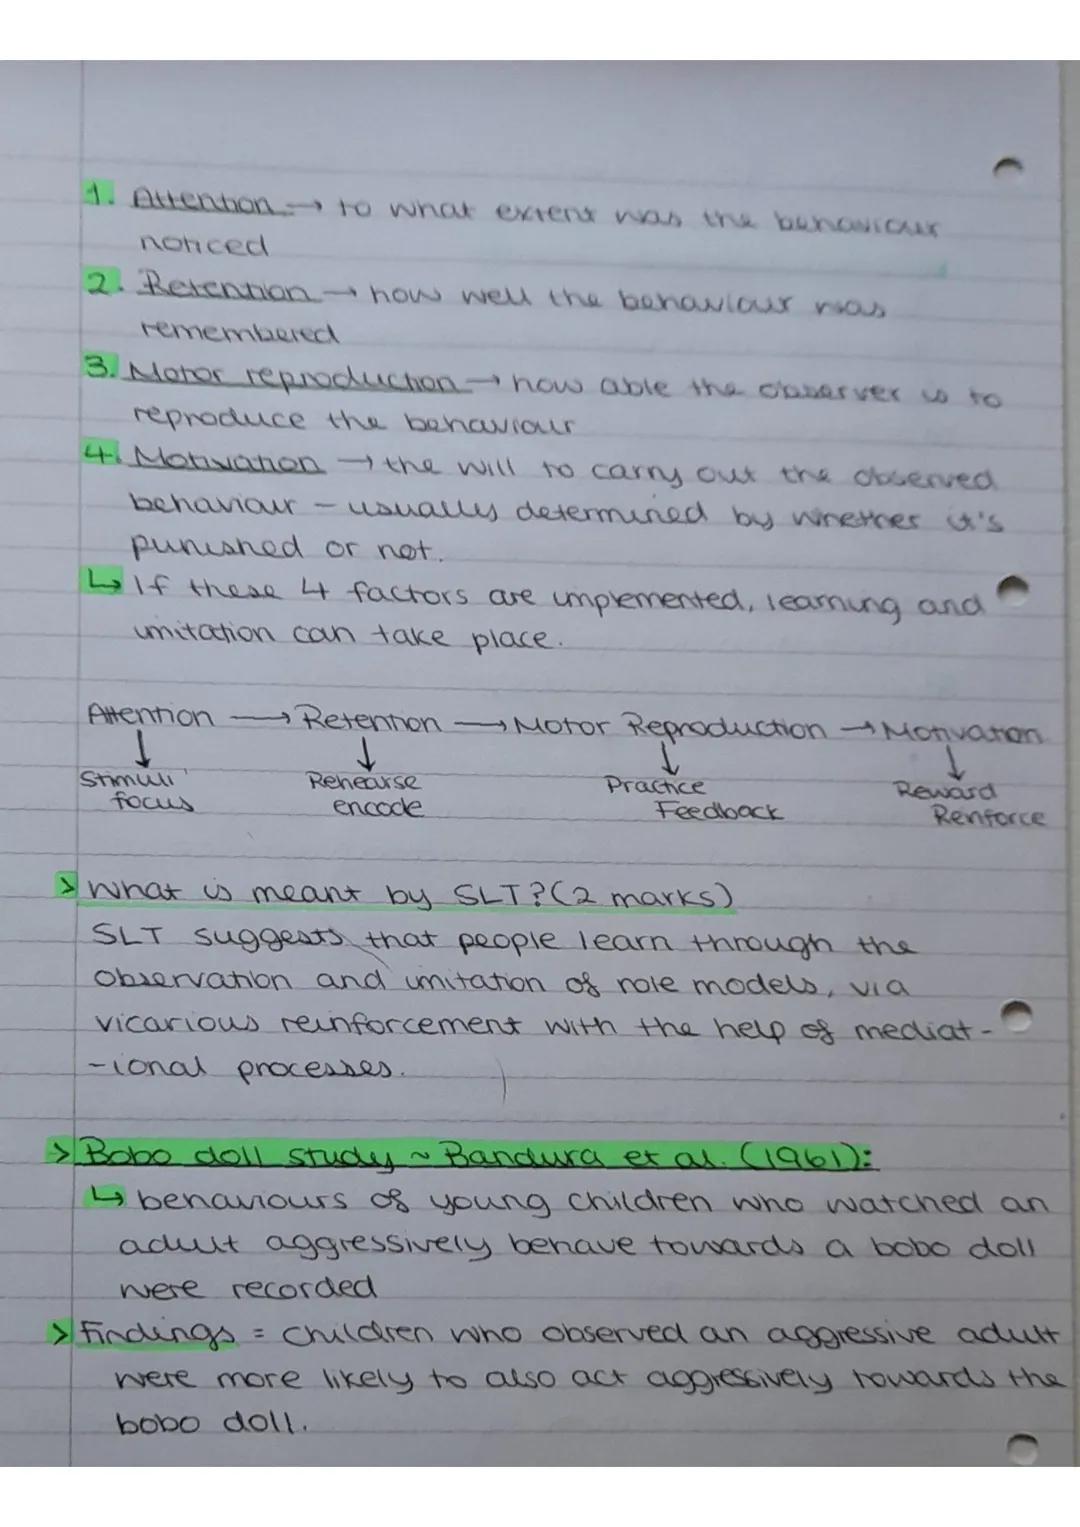 1. Attention → to what extent was the behaviour
noticed
2. Retention → how well the behaviour was
remembered
3. Motor reproduction → how able the observer is to
reproduce the behaviour
4. Motivation → the will to carry out the observed
behaviour - usually determined by whether it's
punished or not.
↳ If these 4 factors are implemented, learning and
imitation can take place.
Attention → Retention → Motor Reproduction → Motivation
↓ ↓ ↓ ↓
Stimuli Rehearse Practice Reward
focus encode Feedback Renforce
> What is meant by SLT? (2 marks)
SLT suggests that people learn through the
observation and imitation of role models, via
vicarious reinforcement with the help of mediat-
-ional processes.
> Bobo doll study ~ Bandura et al. (1961):
↳ behaviours of young children who watched an
adult aggressively behave towards a bobo doll
were recorded
> Findings = children who observed an aggressive adult
were more likely to also act aggressively towards the
bobo doll.